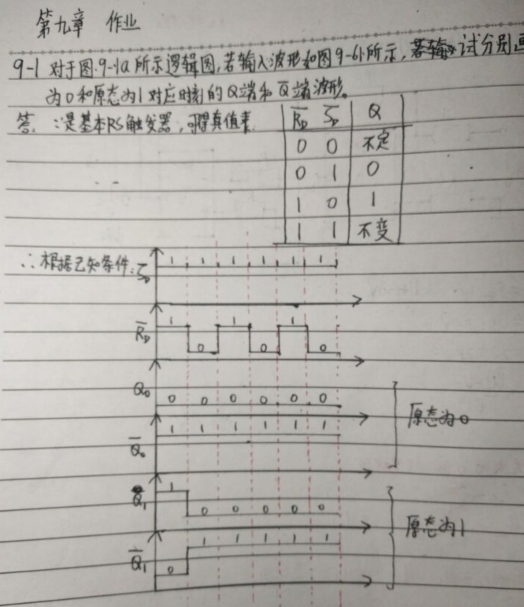 第九章 作业
9-1 对于图9-1a所示逻辑图,若输入波形如图9-6所示,试分别画
为0和原态为1对应时刻的Q端和Q̅端波形。
答. ∵是基本RS触发器,可得真值表
R̅D S̅D Q
0 0 不定
0 1 0
1 0 1
1 1 不变
∴根据已知条件:
S̅D 1 1 1 1 1 1
R̅D 1 0 1 0 1 0
Q0 0 0 0 0 0 0
Q̅0 1 1 1 1 1 1
原态为0
Q1 1 0 0 0 0 0
Q̅1 0 1 1 1 1 1
原态为1